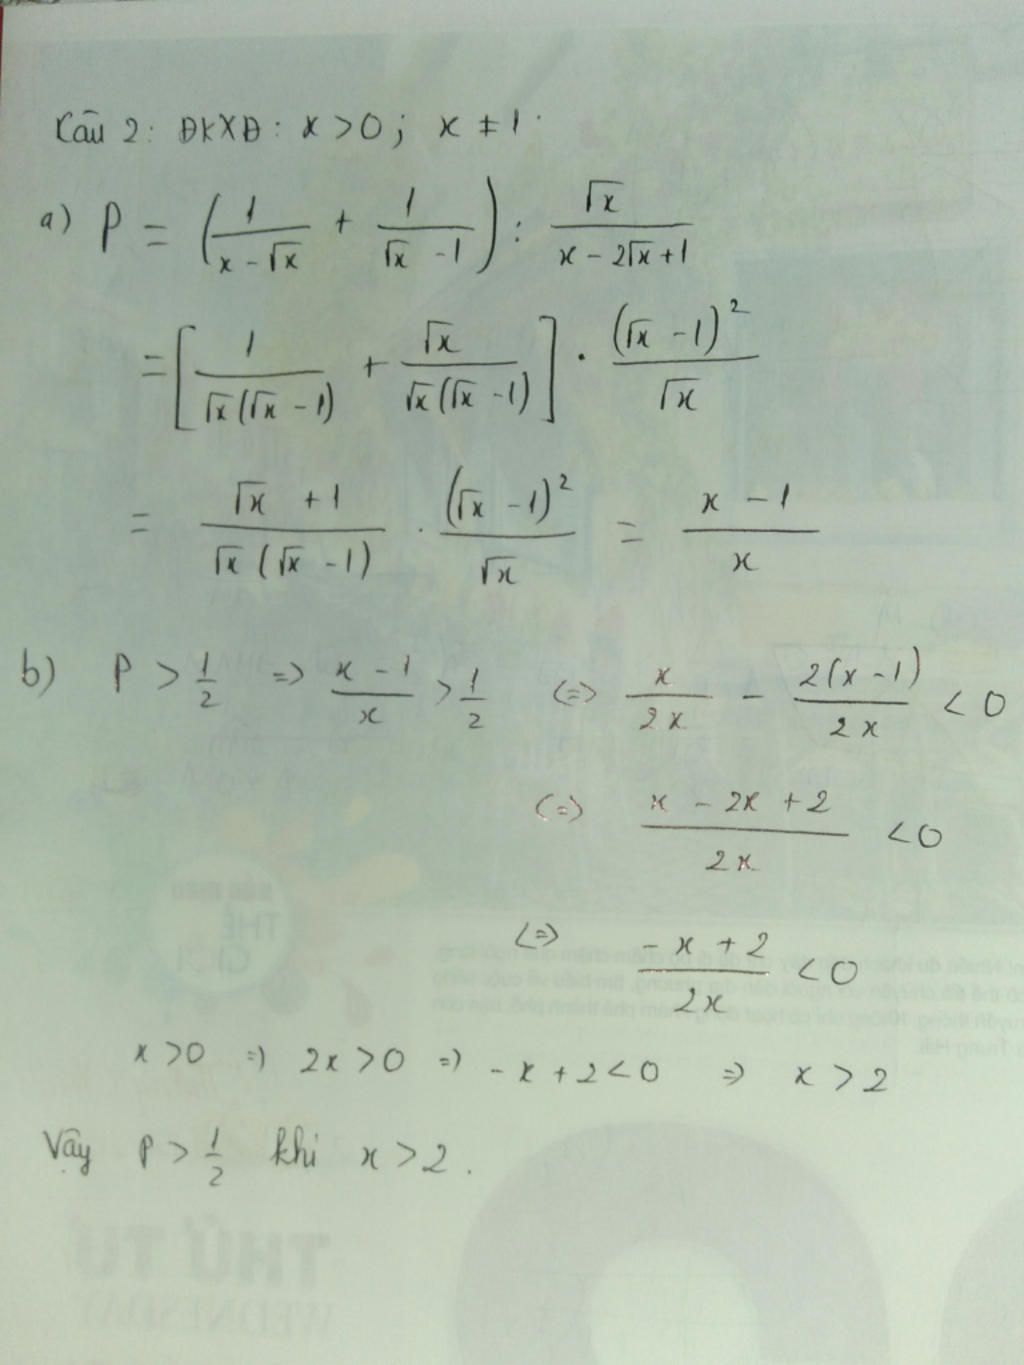 Câu 2: ĐKXĐ: x > 0; x ≠ 1.
a) P = (1/(x - √x) + 1/(√x - 1)) : √x/(x - 2√x + 1)
= [1/(√x(√x - 1)) + √x/(√x(√x - 1))] . (√x - 1)²/√x
= (√x + 1)/(√x(√x - 1)) . (√x - 1)²/√x = (x - 1)/x
b) P > 1/2 => (x - 1)/x > 1/2 <=> x/2x - 2(x - 1)/2x < 0
<=> (x - 2x + 2)/2x < 0
<=> (-x + 2)/2x < 0
x > 0 => 2x > 0 => -x + 2 < 0 => x > 2
Vậy P > 1/2 khi x > 2.
THẾ
GIỚI
THỨ TƯ
WEDNESDAY